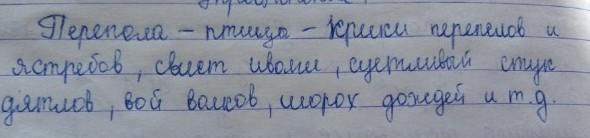 Перепела - птица - крики перепелов и
ястребов, свист иволги, суетливый стук
дятлов, вой волков, шорох дождей и т.д.